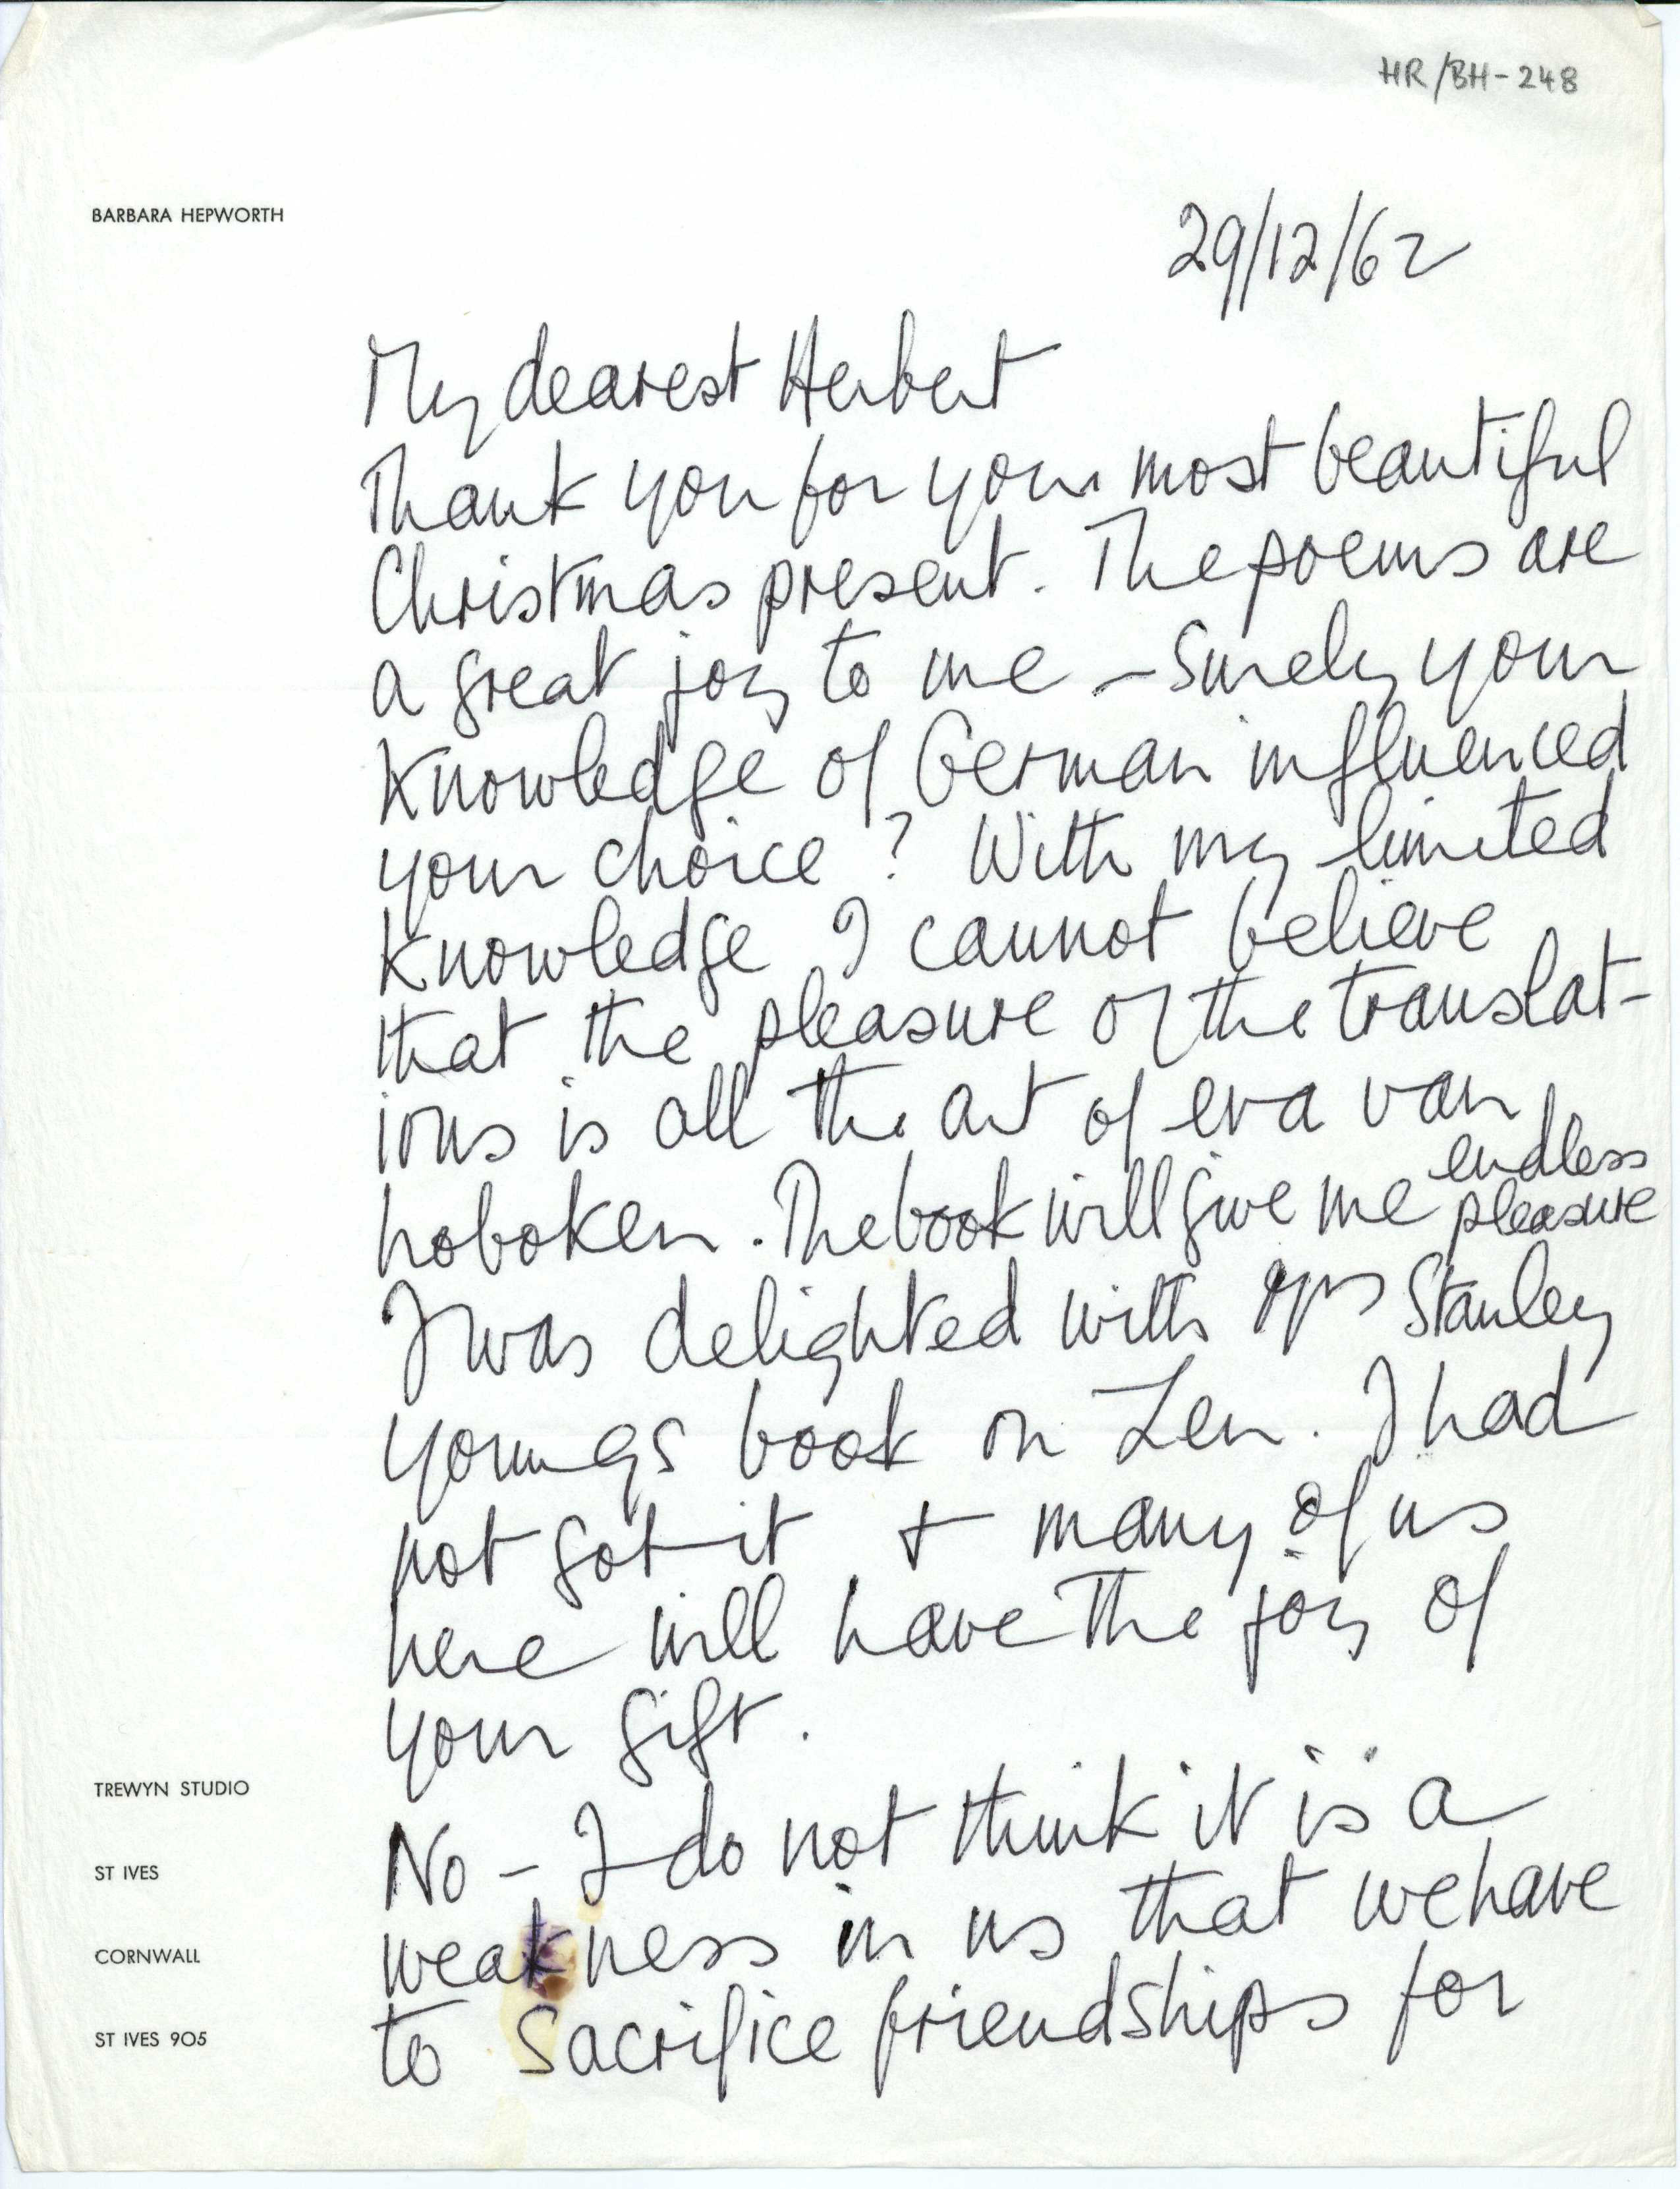 HR/BH-248
BARBARA HEPWORTH
29/12/62
My dearest Herbert
Thank you for your most beautiful
Christmas present. The poems are
a great joy to me – surely your
knowledge of German influenced
your choice? With my limited
knowledge I cannot believe
that the pleasure of the translat-
ions is all the art of eva van
hoboken. The book will give me endless
pleasure
I was delighted with Mrs Stanley
youngs book on Zen. I had
not got it + many of us
here will have the joy of
your gift.
No – I do not think it is a
weakness in us that we have
to sacrifice friendships for
TREWYN STUDIO
ST IVES
CORNWALL
ST IVES 905